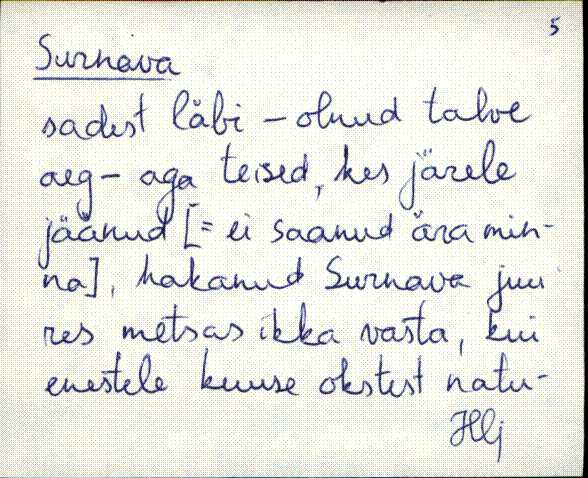 5
Surnava
sadest läbi – olnud talve
aeg – aga teised, kes järele
jäänud [= ei saanud ära min-
na], hakanud Surnava juu
res metsas ikka vasta, kui
enestele kuuse okstest natu-
Hlj